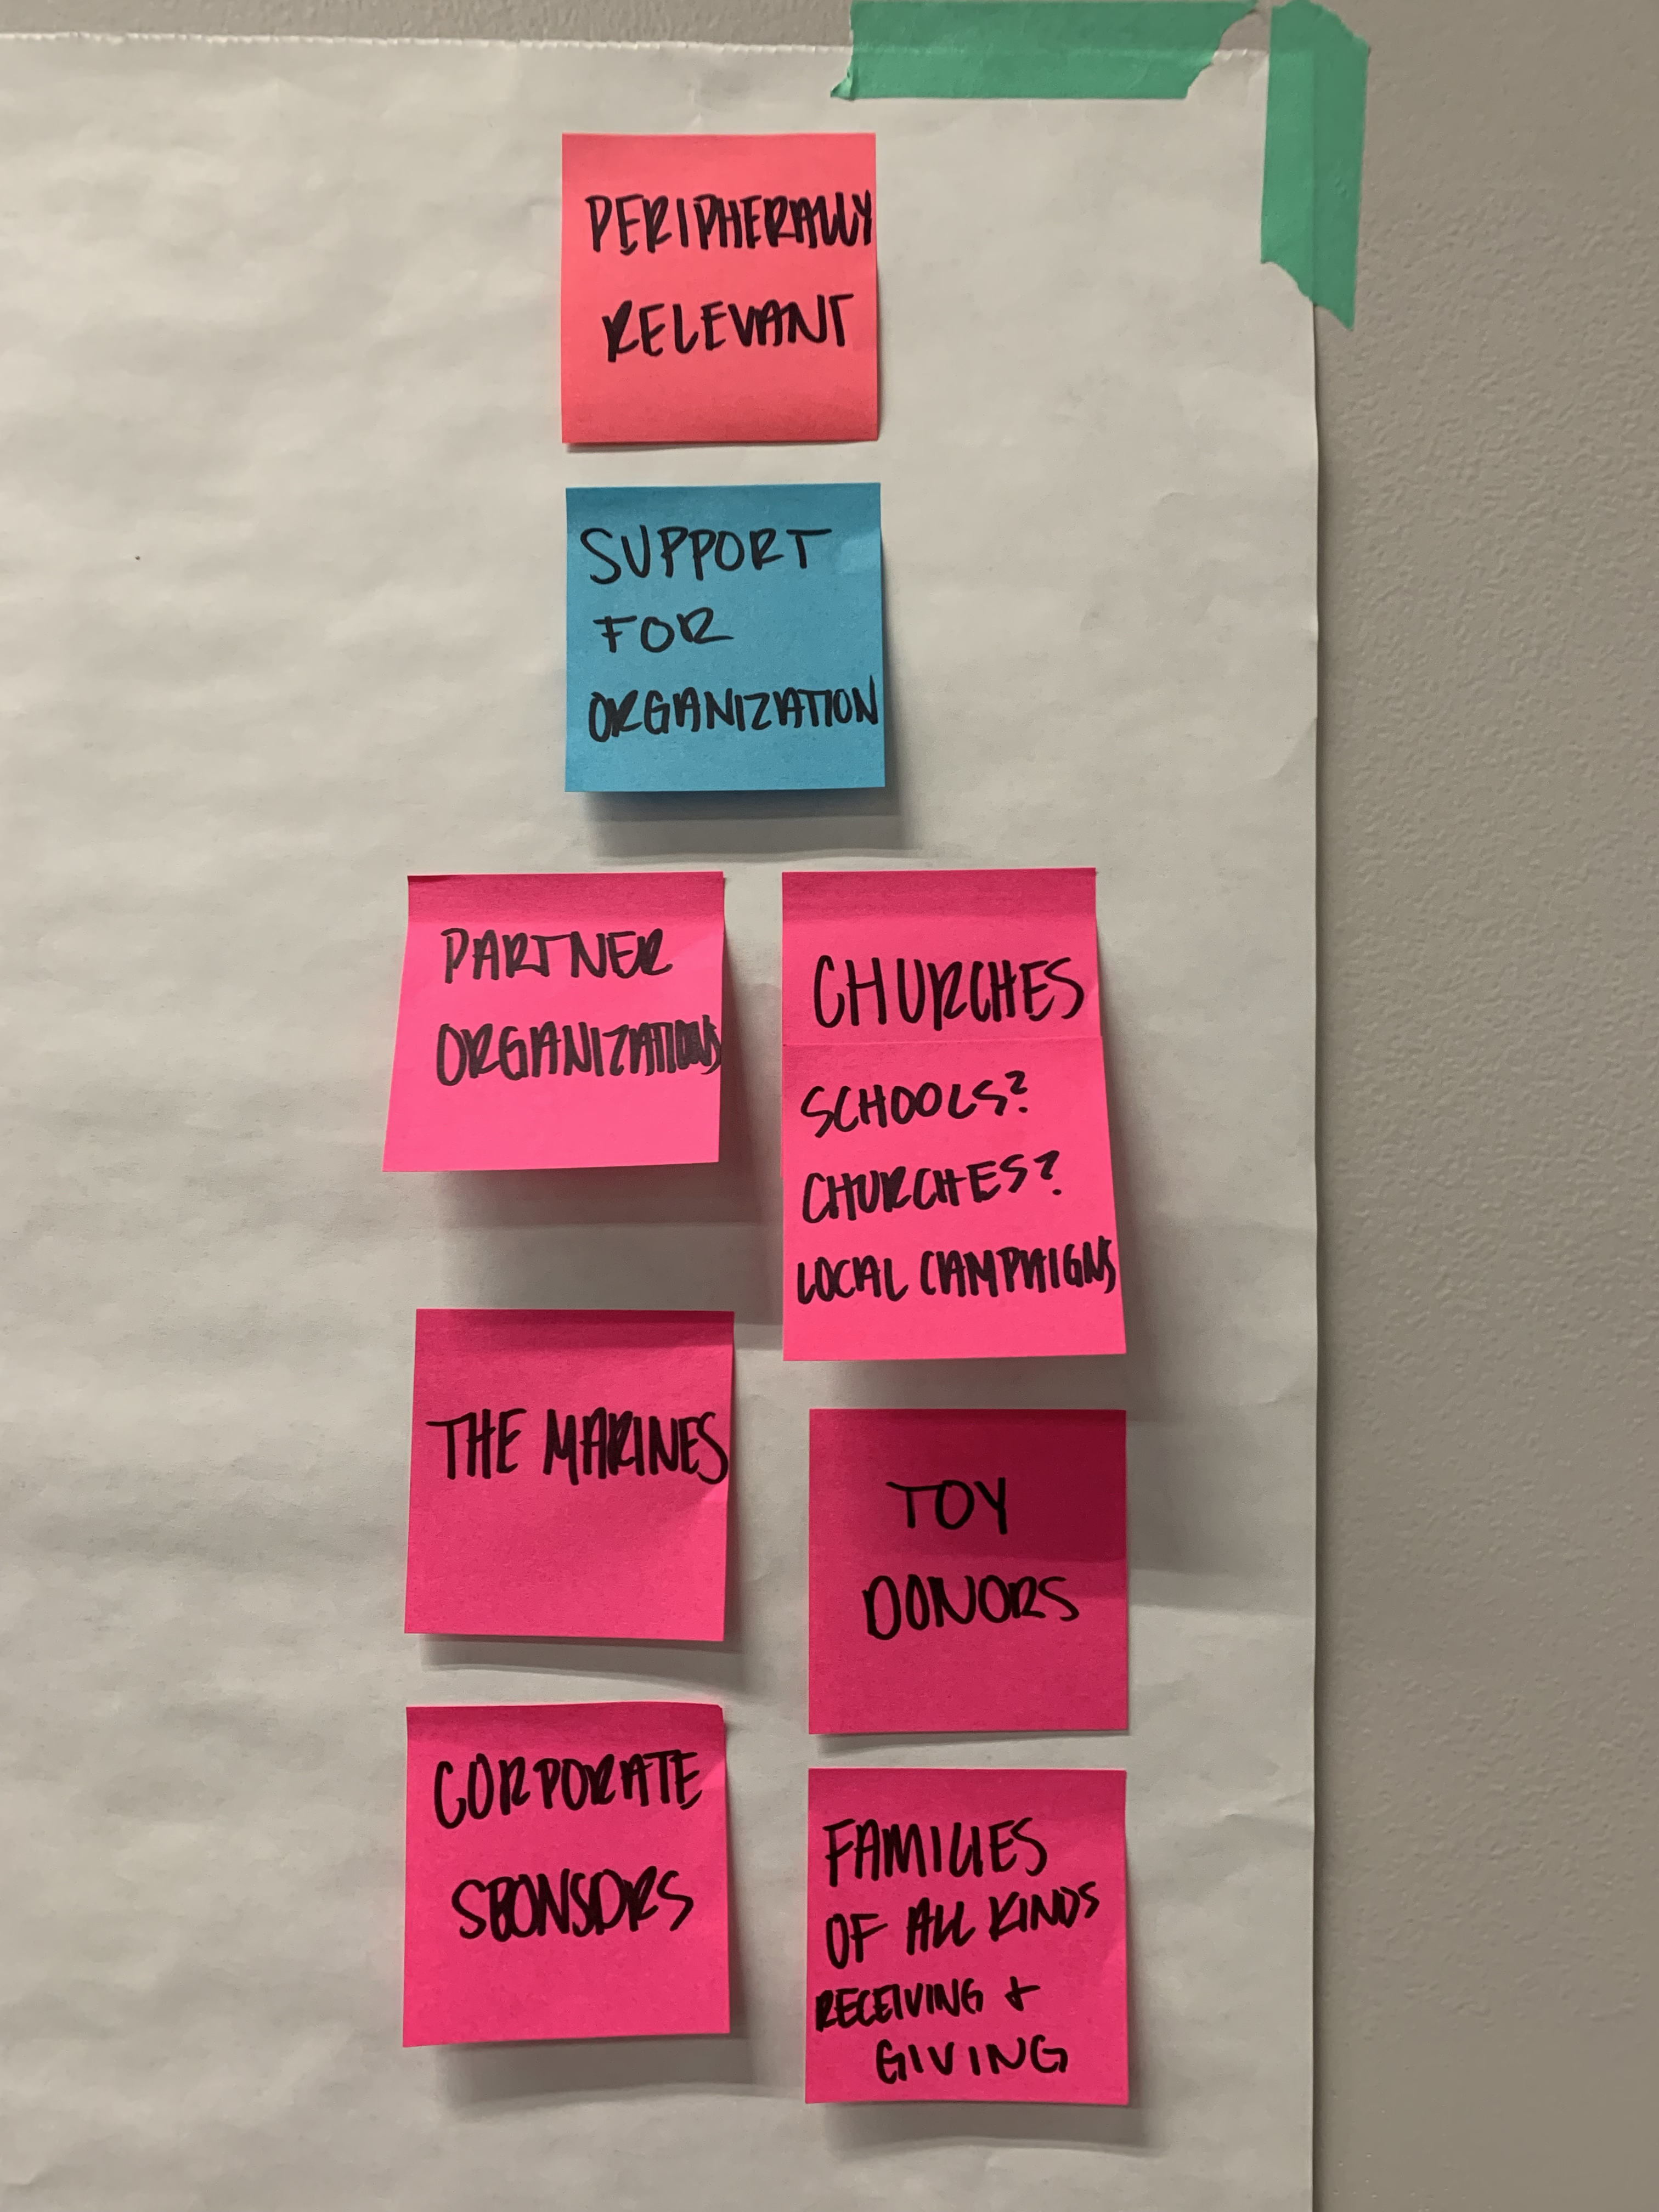 PERIPHERALLY
RELEVANT
SUPPORT
FOR
ORGANIZATION
PARTNER
ORGANIZATIONS
CHURCHES
SCHOOLS?
CHURCHES?
LOCAL CAMPAIGNS
THE MARINES
TOY
DONORS
CORPORATE
SPONSORS
FAMILIES
OF ALL KINDS
RECEIVING +
GIVING